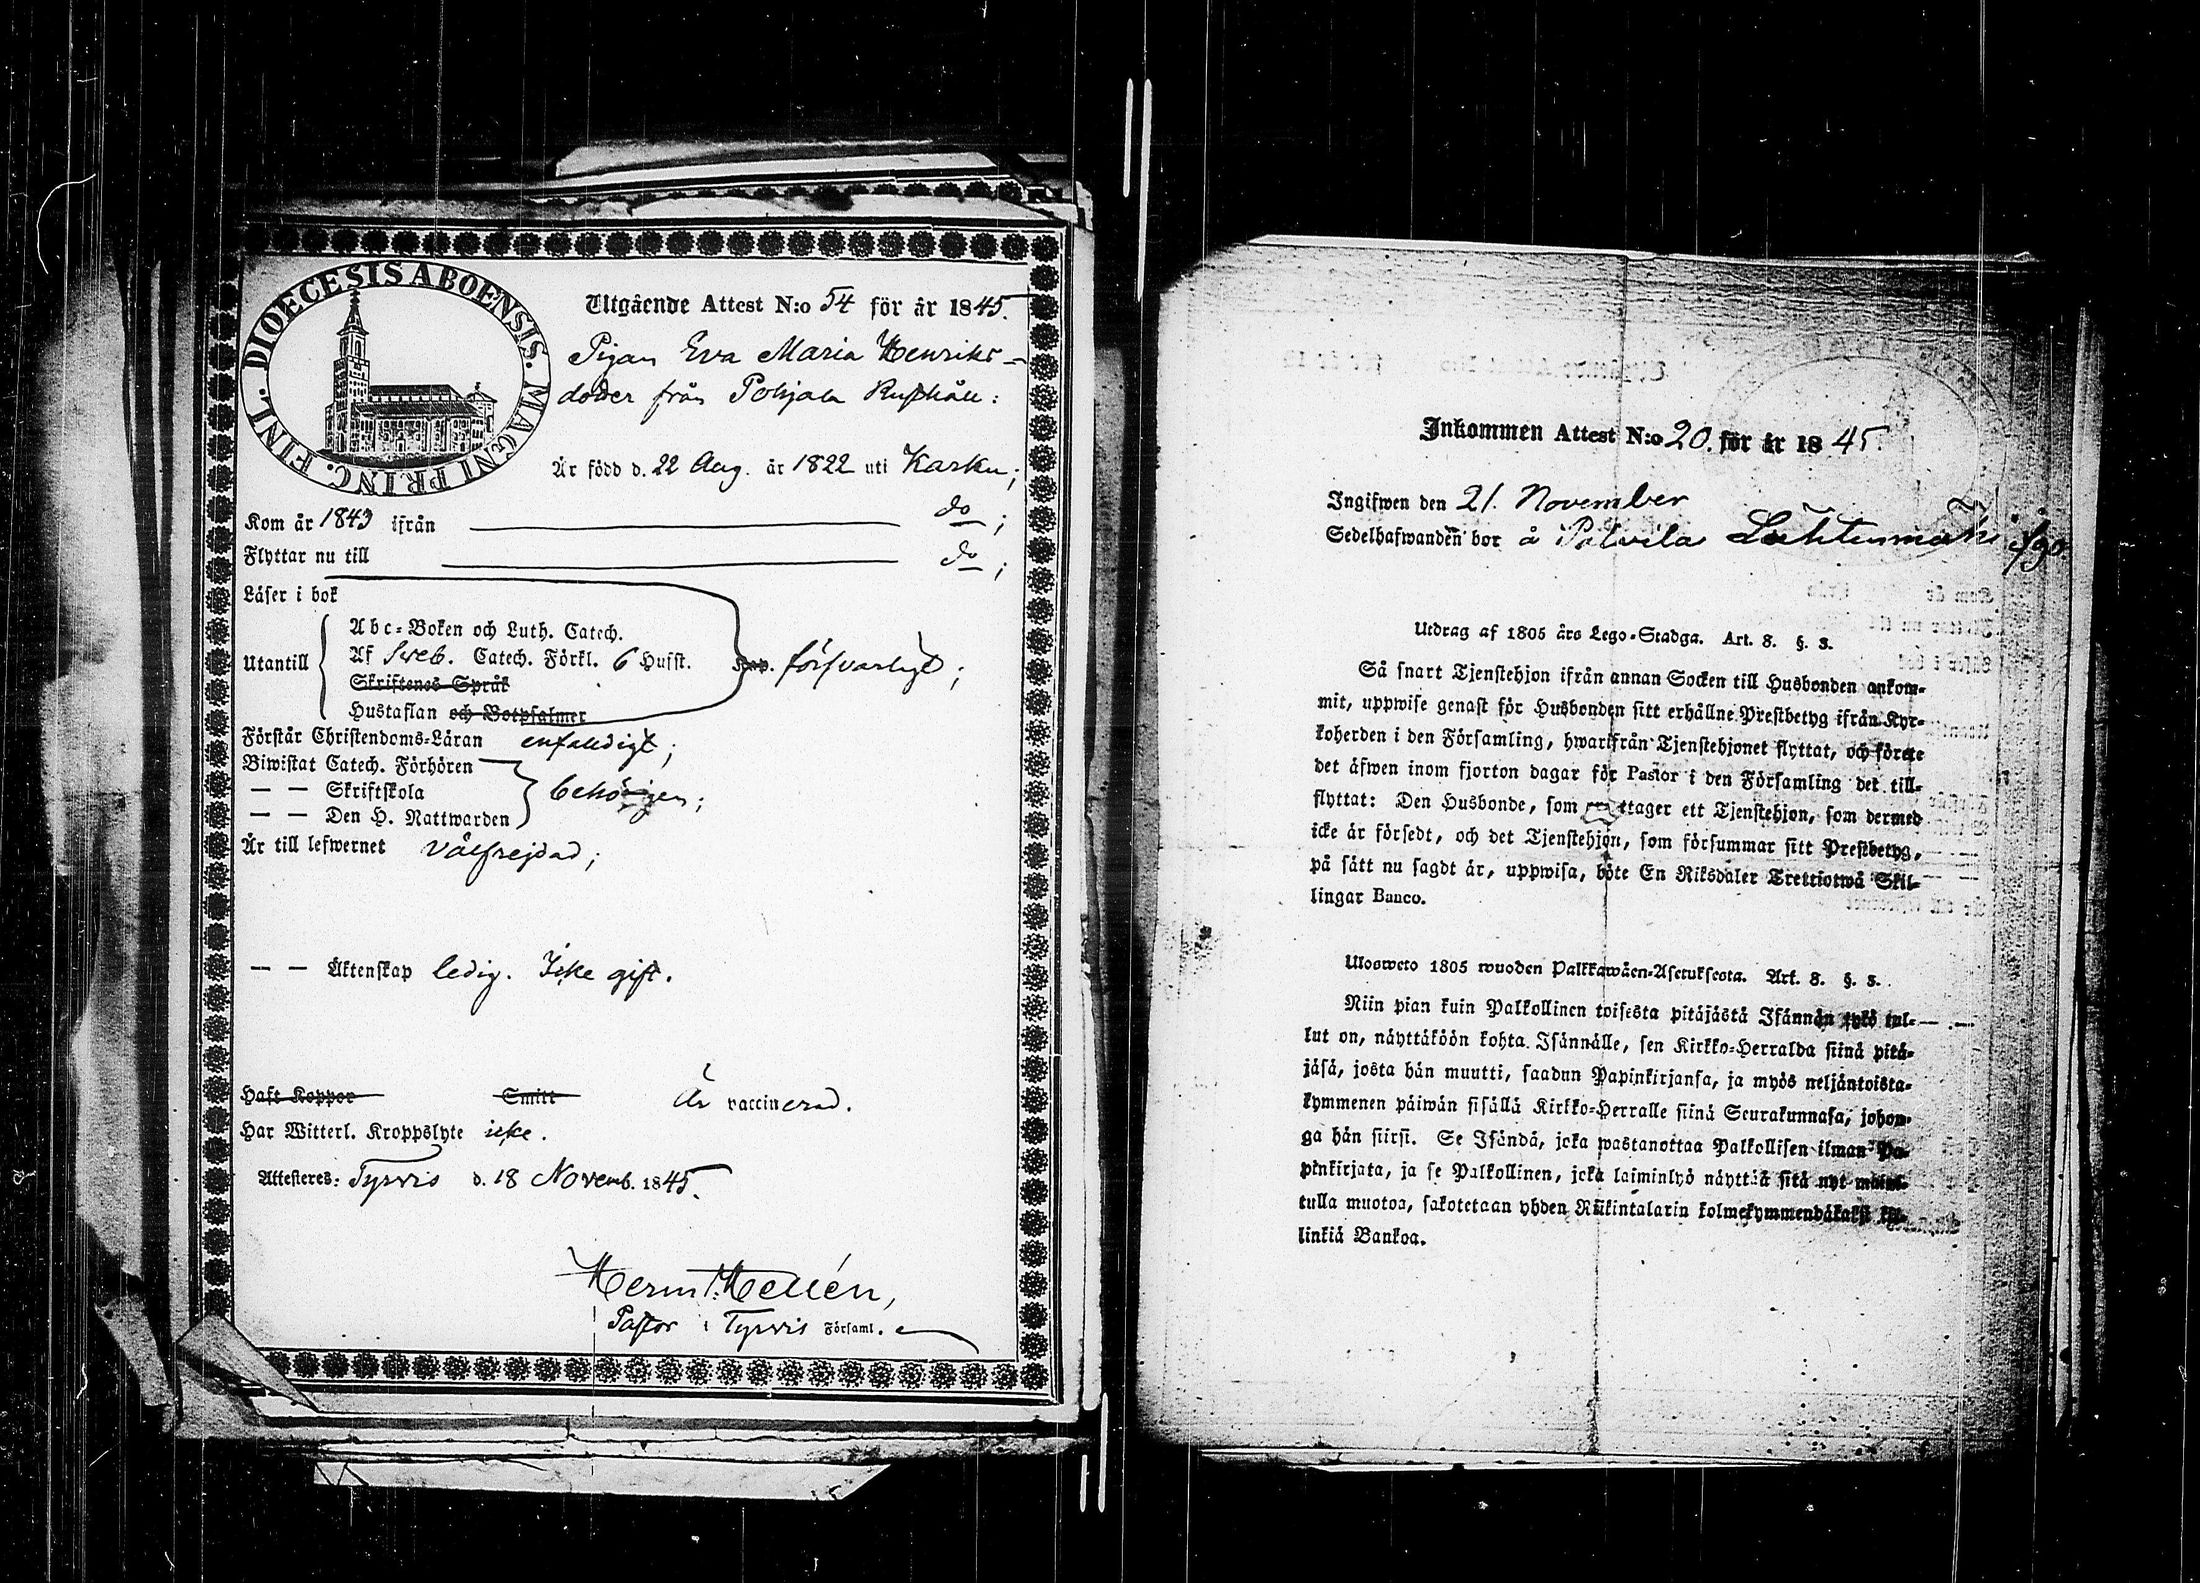 DIOECESIS ABOENSIS. MAGNI PRINC. FINL.
Utgående Attest N:o 54 för år 1845.
Pigan Eva Maria Henriks-
doter från Pohjala Rusthåll:
Är född d. 22 Aug. år 1822 uti Karku;
Kom år 1843 ifrån do;
Flyttar nu till do;
Läser i bok
Utantill
Abc-Boken och Luth. Catech.
Af Sveb. Catech. Förkl. 6 Husst. Kap. försvarligt;
Skriftenes Språk
Hustaflan och Botpsalmer
Förstår Christendoms-Läran enfaldigt;
Biwistat Catech. Förhören
— — Skriftskola behörigen;
— — Den H. Nattwarden
Är till lefwernet välfrejdad;
— — Äktenskap ledig. Icke gift.
Haft Koppor Smitt Är vaccinerad.
Har Witterl. Kroppslyte icke.
Attesteras: Tyrvis d. 18 Novemb. 1845.
Herm. Hellén,
Pastor i Tyrvis Församl.
Inkommen Attest N:o 20. för år 1845.
Ingifwen den 21. November
Sedelhafwanden bor å
Utdrag af 1805 års Lego-Stadga. Art. 8. §. 3.
Så snart Tjenstehjon ifrån annan Socken till Husbonden ankom-
mit, uppwise genast för Husbonden sitt erhållne Prestbetyg ifrån Kyr-
koherden i den Församling, hwarifrån Tjenstehjonet flyttat, och förete
det äfwen inom fjorton dagar för Pastor i den Församling det till-
flyttat: Den Husbonde, som ettager ett Tjenstehjon, som dermed
icke är försedt, och det Tjenstehjon, som försummar sitt Prestbetyg,
på sätt nu sagdt är, uppwisa, böte En Riksdaler Trettiotwå Skil-
lingar Banco.
Ulosweto 1805 wuoden Palkkawäen-Asetuksesta. Art. 8. §. 3.
Niin pian kuin Palkollinen toisesta pitäjästä Isännän tykö tul-
lut on, näyttäköön kohta Isännälle, sen Kirkko-Herralda siinä pitä-
jäsä, josta hän muutti, saadun Papinkirjansa, ja myös neljäntoista-
kymmenen päiwän sisällä Kirkko-Herralle siinä Seurakunnasa, johon-
ga hän siirsi. Se Isändä, joka wastanottaa Palkollisen ilman Pa-
pinkirjata, ja se Palkollinen, joka laiminlyö näyttää sitä nyt mainit-
tulla muotoa, sakotetaan yhden Riikintalarin kolmekymmendäkaksi kil-
linkiä Bankoa.